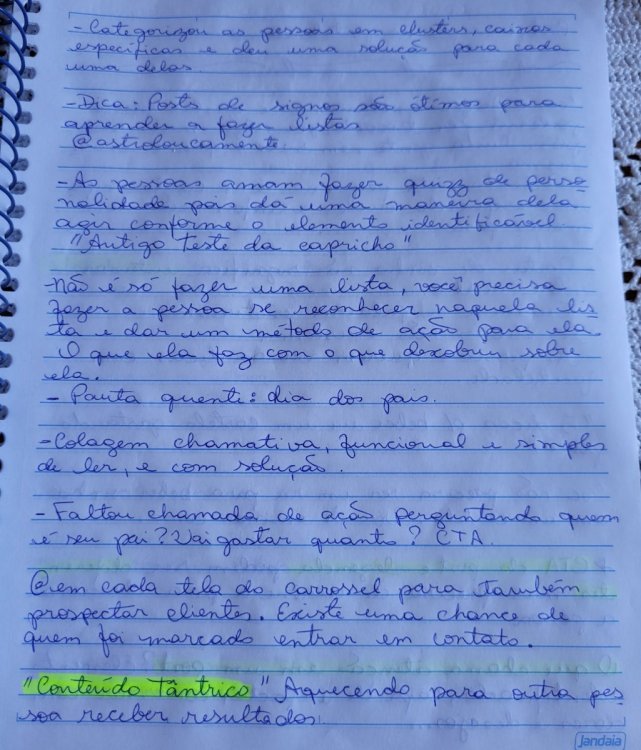 - Categorizou as pessoas em clusters, caixas
específicas e deu uma solução para cada
uma delas.
- Dica: Posts de signos são ótimos para
aprender a fazer listas
@astroloucamente
- As pessoas amam fazer quizz de perso
nalidade pois dá uma maneira dela
agir conforme o elemento identificável.
"Antigo teste da capricho"
- Não é só fazer uma lista, você precisa
fazer a pessoa se reconhecer naquela lis
ta e dar um método de ação para ela.
O que ela faz com o que descobriu sobre
ela.
- Pauta quente: dia dos pais.
- Colagem chamativa, funcional e simples
de ler, e com solução.
- Faltou chamada de ação perguntando quem
é seu pai? Vai gastar quanto? CTA.
@ em cada tela do carrossel para também
prospectar clientes. Existe uma chance de
quem foi marcado entrar em contato.
"Conteúdo Tântrico" Aquecendo para outra pes
soa receber resultados.
Jandaia